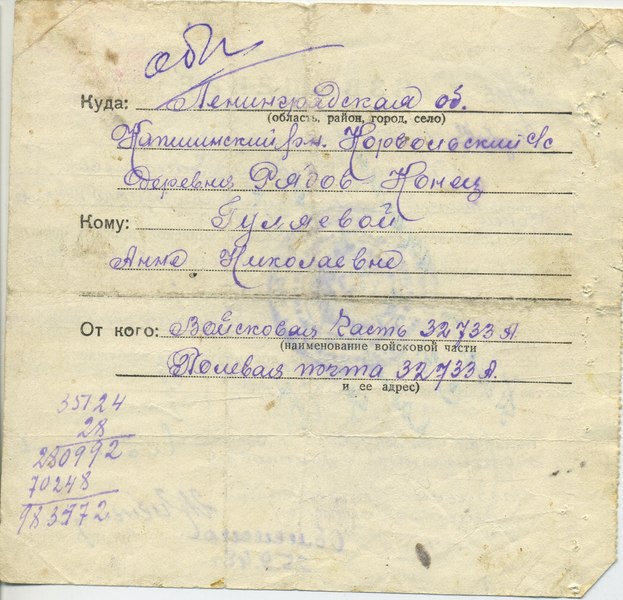 Куда: Ленинградская об.
(область, район, город, село)
Капшинский р-н. Корвольский с/с
деревня Рядов Конец
Кому: Гуляевой
Анне Николаевне
От кого: Войсковая Часть 32733 А
(наименование войсковой части
Полевая почта 32733 А.
и ее адрес)
35124
28
280992
70248
983472